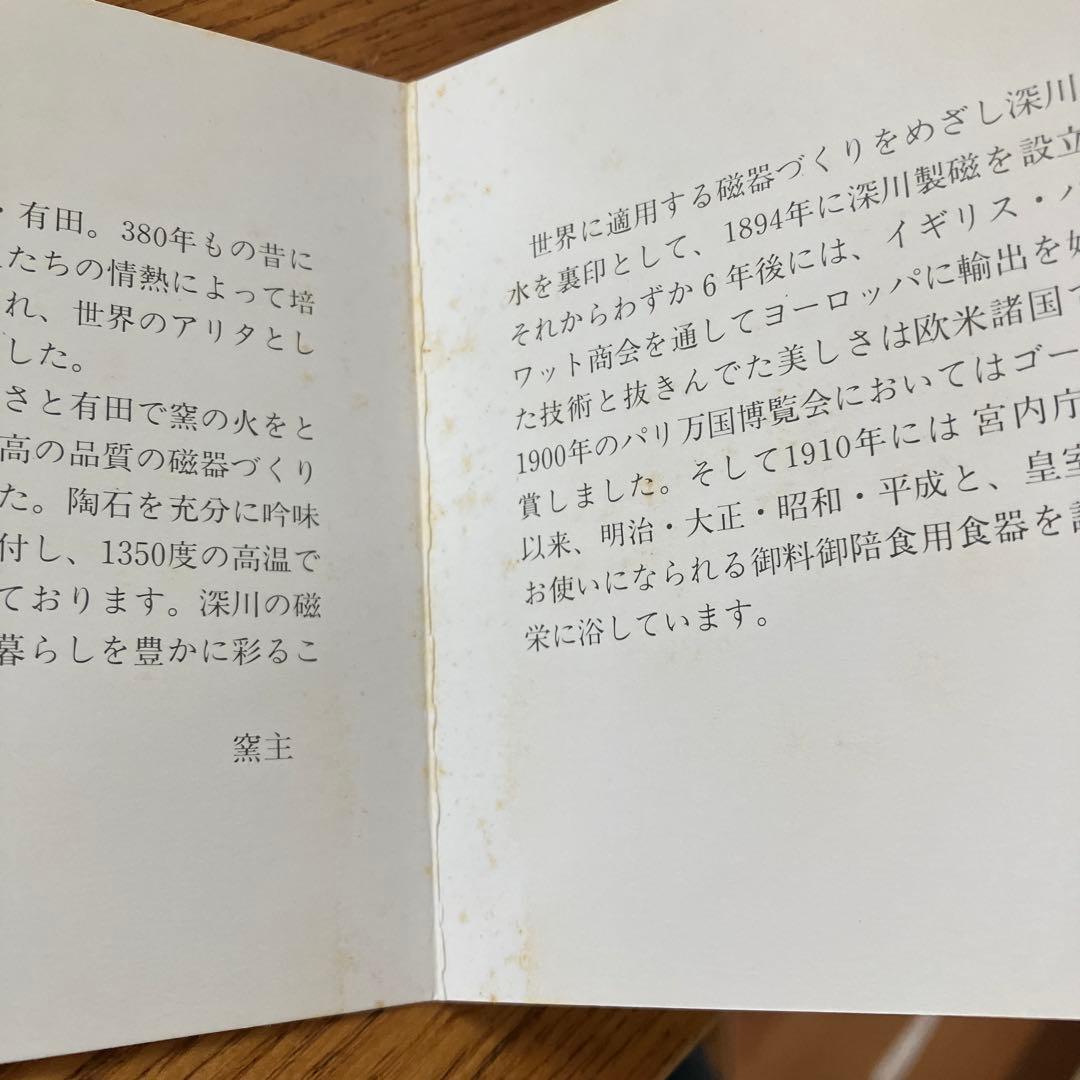 ・有田。380年もの昔に
たちの情熱によって培
れ、世界のアリタとし
した。
さと有田で窯の火をと
高の品質の磁器づくり
た。陶石を充分に吟味
付し、1350度の高温で
ております。深川の磁
暮らしを豊かに彩るこ
窯主
世界に適用する磁器づくりをめざし深川
水を裏印として、1894年に深川製磁を設立
それからわずか6年後には、イギリス・ハ
ワット商会を通してヨーロッパに輸出を始
た技術と抜きんでた美しさは欧米諸国で
1900年のパリ万国博覧会においてはゴー
賞しました。そして1910年には宮内庁
以来、明治・大正・昭和・平成と、皇室
お使いになられる御料御陪食用食器を
栄に浴しています。